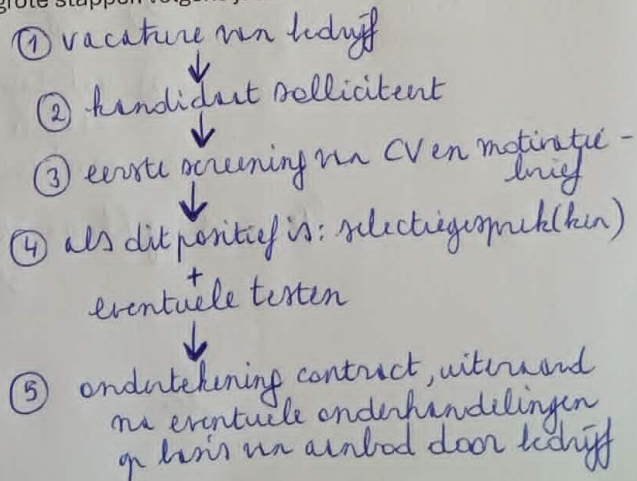 grote stappen volgens jou
① vacature van bedrijf
↓
② kandidaat solliciteert
↓
③ eerste screening van CV en motivatie-
brief
↓
④ als dit positief is: selectiegesprek(ken)
+
eventuele testen
↓
⑤ ondertekening contract, uiteraard
na eventuele onderhandelingen
op basis van aanbod door bedrijf